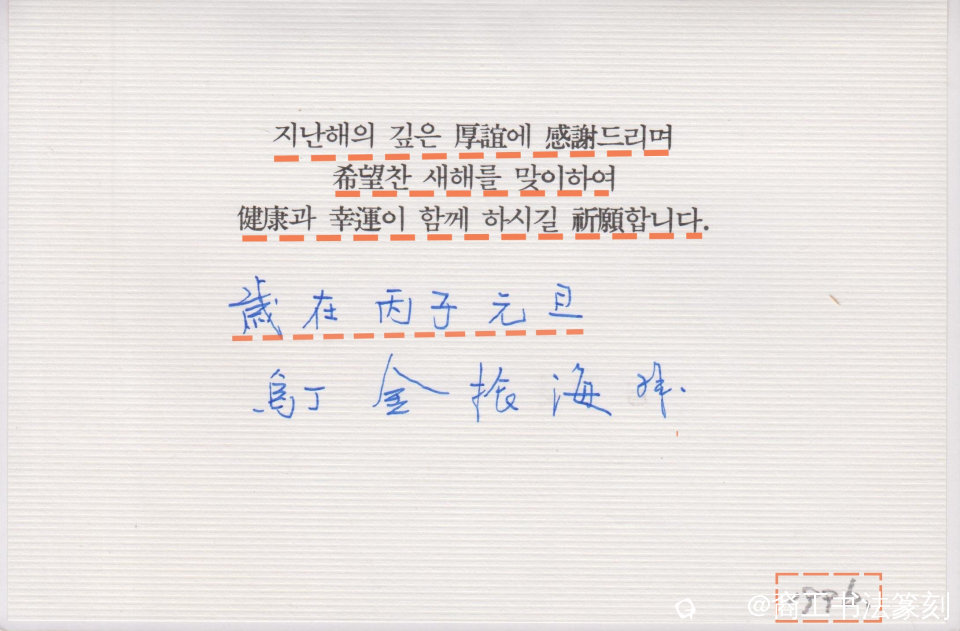 지난해의 깊은 厚誼에 感謝드리며
希望찬 새해를 맞이하여
健康과 幸運이 함께 하시길 祈願합니다.
歲在丙子元旦
烏丁 金振海 拜.
1996.
@裔工书法篆刻